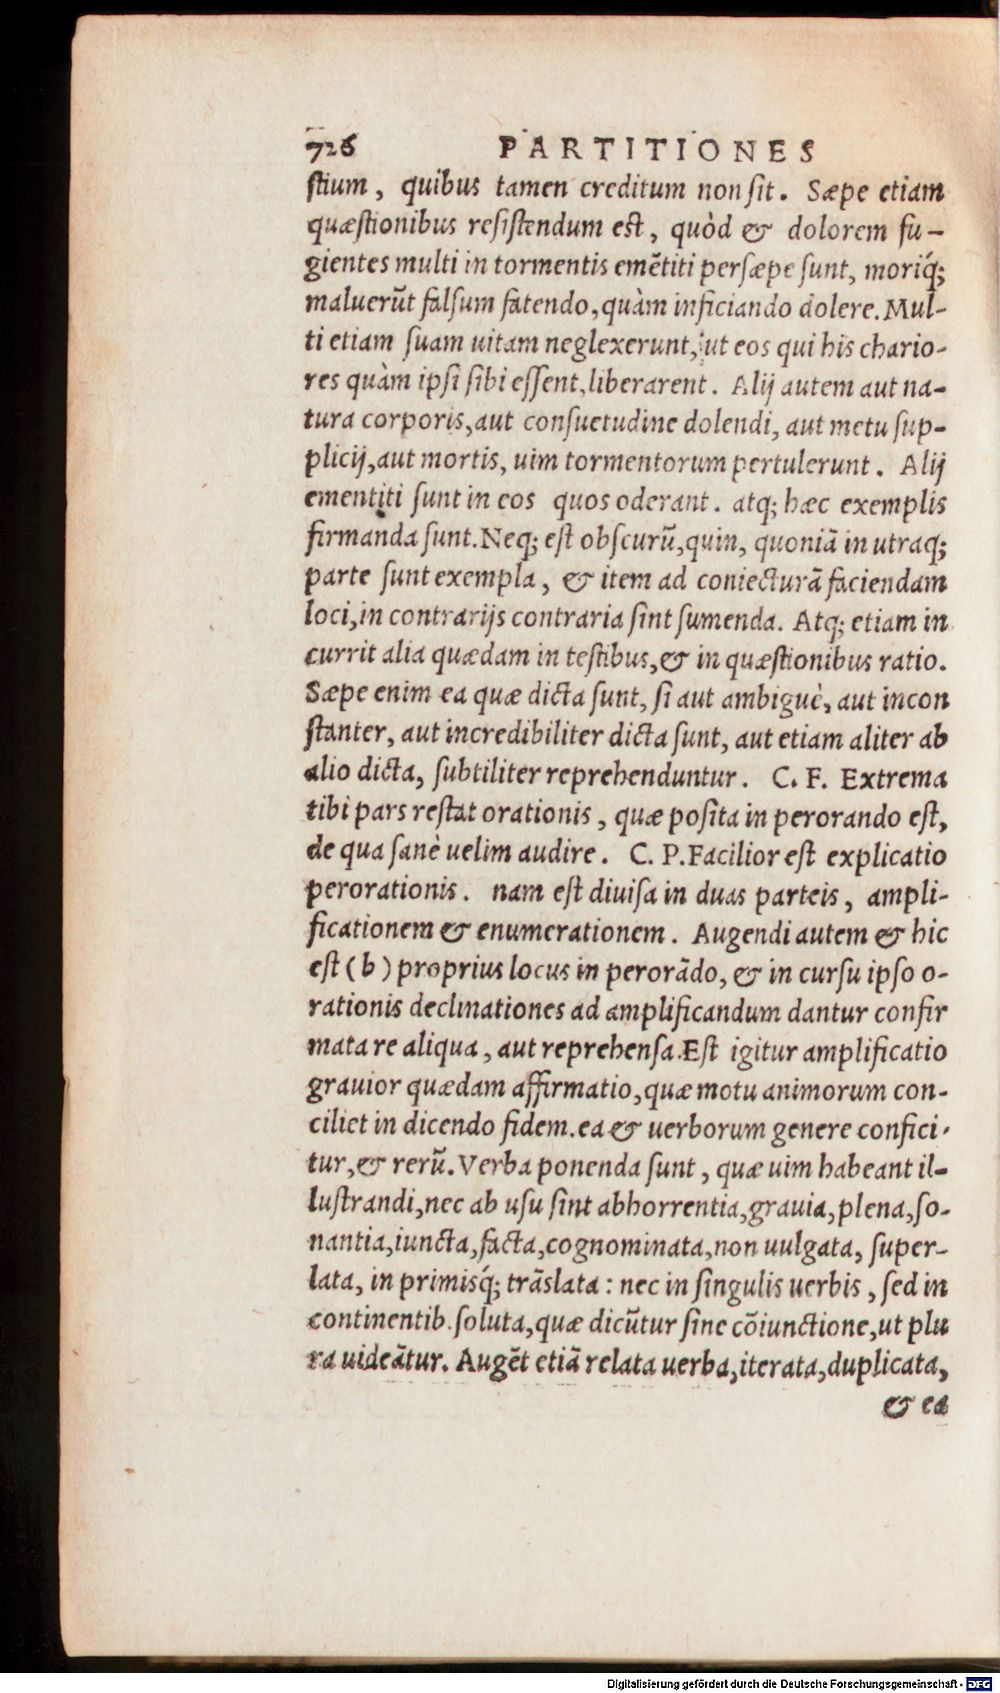 726 PARTITIONES
stium, quibus tamen creditum non sit. Sæpe etiam
quæstionibus resistendum est, quòd & dolorem fu-
gientes multi in tormentis emẽtiti persæpe sunt, moriq́;
maluerũt falsum fatendo, quàm inficiando dolere. Mul-
ti etiam suam uitam neglexerunt, ut eos qui his chario-
res quàm ipsi sibi essent, liberarent. Alij autem aut na-
tura corporis, aut consuetudine dolendi, aut metu sup-
plicij, aut mortis, uim tormentorum pertulerunt. Alij
ementiti sunt in eos quos oderant. atq; hæc exemplis
firmanda sunt. Neq; est obscurũ, quin, quoniã in utraq;
parte sunt exempla, & item ad coniecturã faciendam
loci, in contrarijs contraria sint sumenda. Atq; etiam in
currit alia quædam in testibus, & in quæstionibus ratio.
Sæpe enim ea quæ dicta sunt, si aut ambiguè, aut incon
stanter, aut incredibiliter dicta sunt, aut etiam aliter ab
alio dicta, subtiliter reprehenduntur. C. F. Extrema
tibi pars restat orationis, quæ posita in perorando est,
de qua sanè uelim audire. C. P. Facilior est explicatio
perorationis. nam est diuisa in duas parteis, ampli-
ficationem & enumerationem. Augendi autem & hic
est (b) proprius locus in perorãdo, & in cursu ipso o-
rationis declinationes ad amplificandum dantur confir
mata re aliqua, aut reprehensa. Est igitur amplificatio
grauior quædam affirmatio, quæ motu animorum con-
ciliet in dicendo fidem. ea & uerborum genere confici-
tur, & rerũ. Verba ponenda sunt, quæ uim habeant il-
lustrandi, nec ab usu sint abhorrentia, grauia, plena, so-
nantia, iuncta, facta, cognominata, non uulgata, super-
lata, in primisq́; trãslata: nec in singulis uerbis, sed in
continentib. soluta, quæ dicũtur sine cõiunctione, ut plu
ra uideãtur. Augẽt etiã relata uerba, iterata, duplicata,
& ea
Digitalisierung gefördert durch die Deutsche Forschungsgemeinschaft - DFG